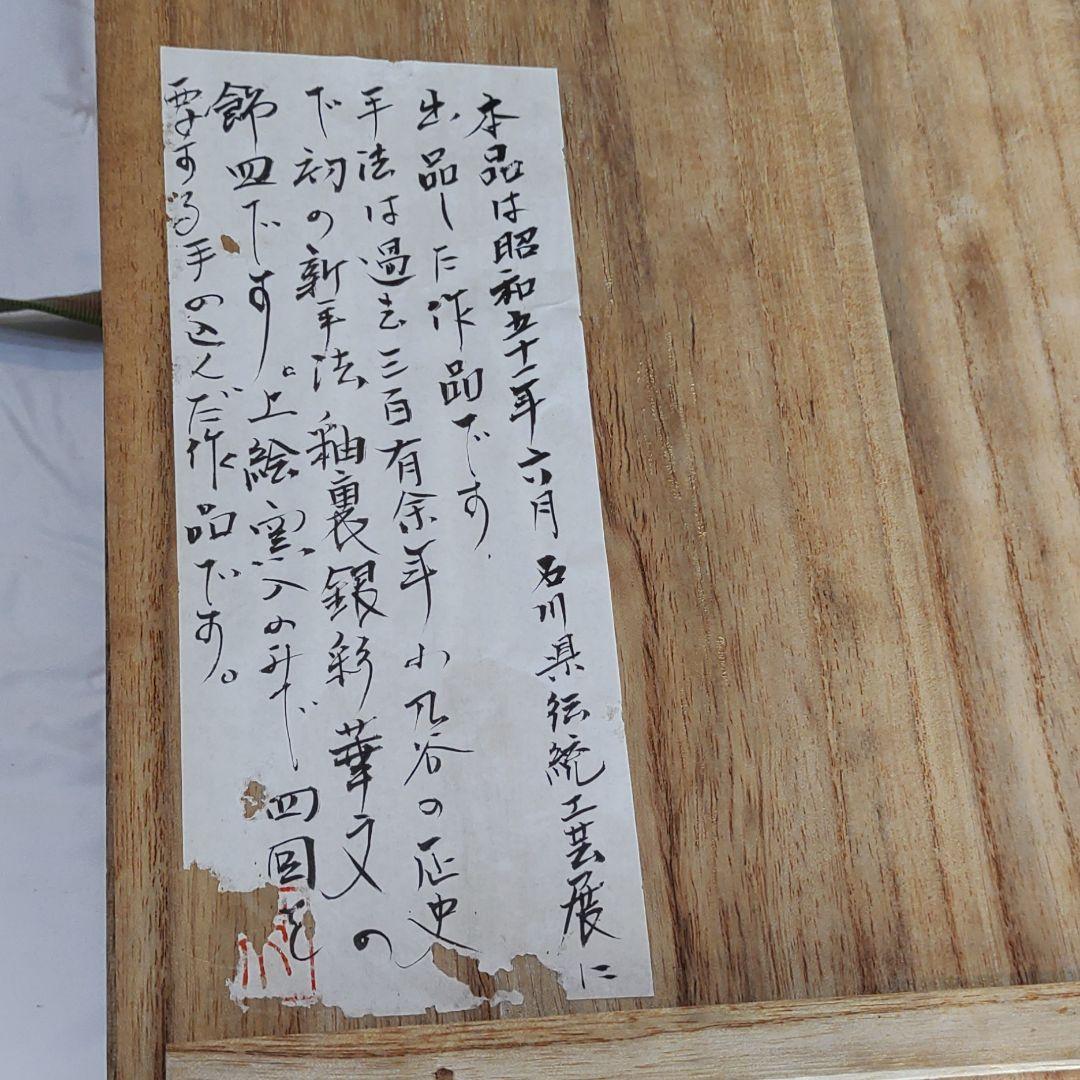 本品は昭和五十一年六月石川県伝統工芸展に
出品した作品です.
手法は過去三百有余年小九谷の歴史
で初の新手法釉裏銀彩華文の
飾皿です。上絵窯入のみで四回を
要する手の込んだ作品です。